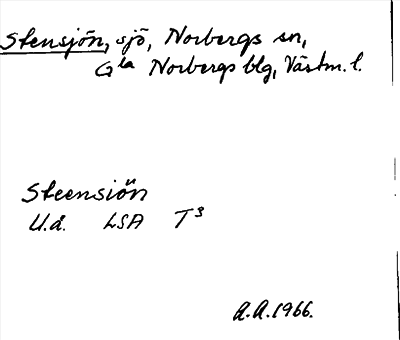 Stensjön, sjö, Norbergs sn,
Gla Norbergs blg, Västm. l.
Steensiön
U.å. LSA T3
A.A. 1966.